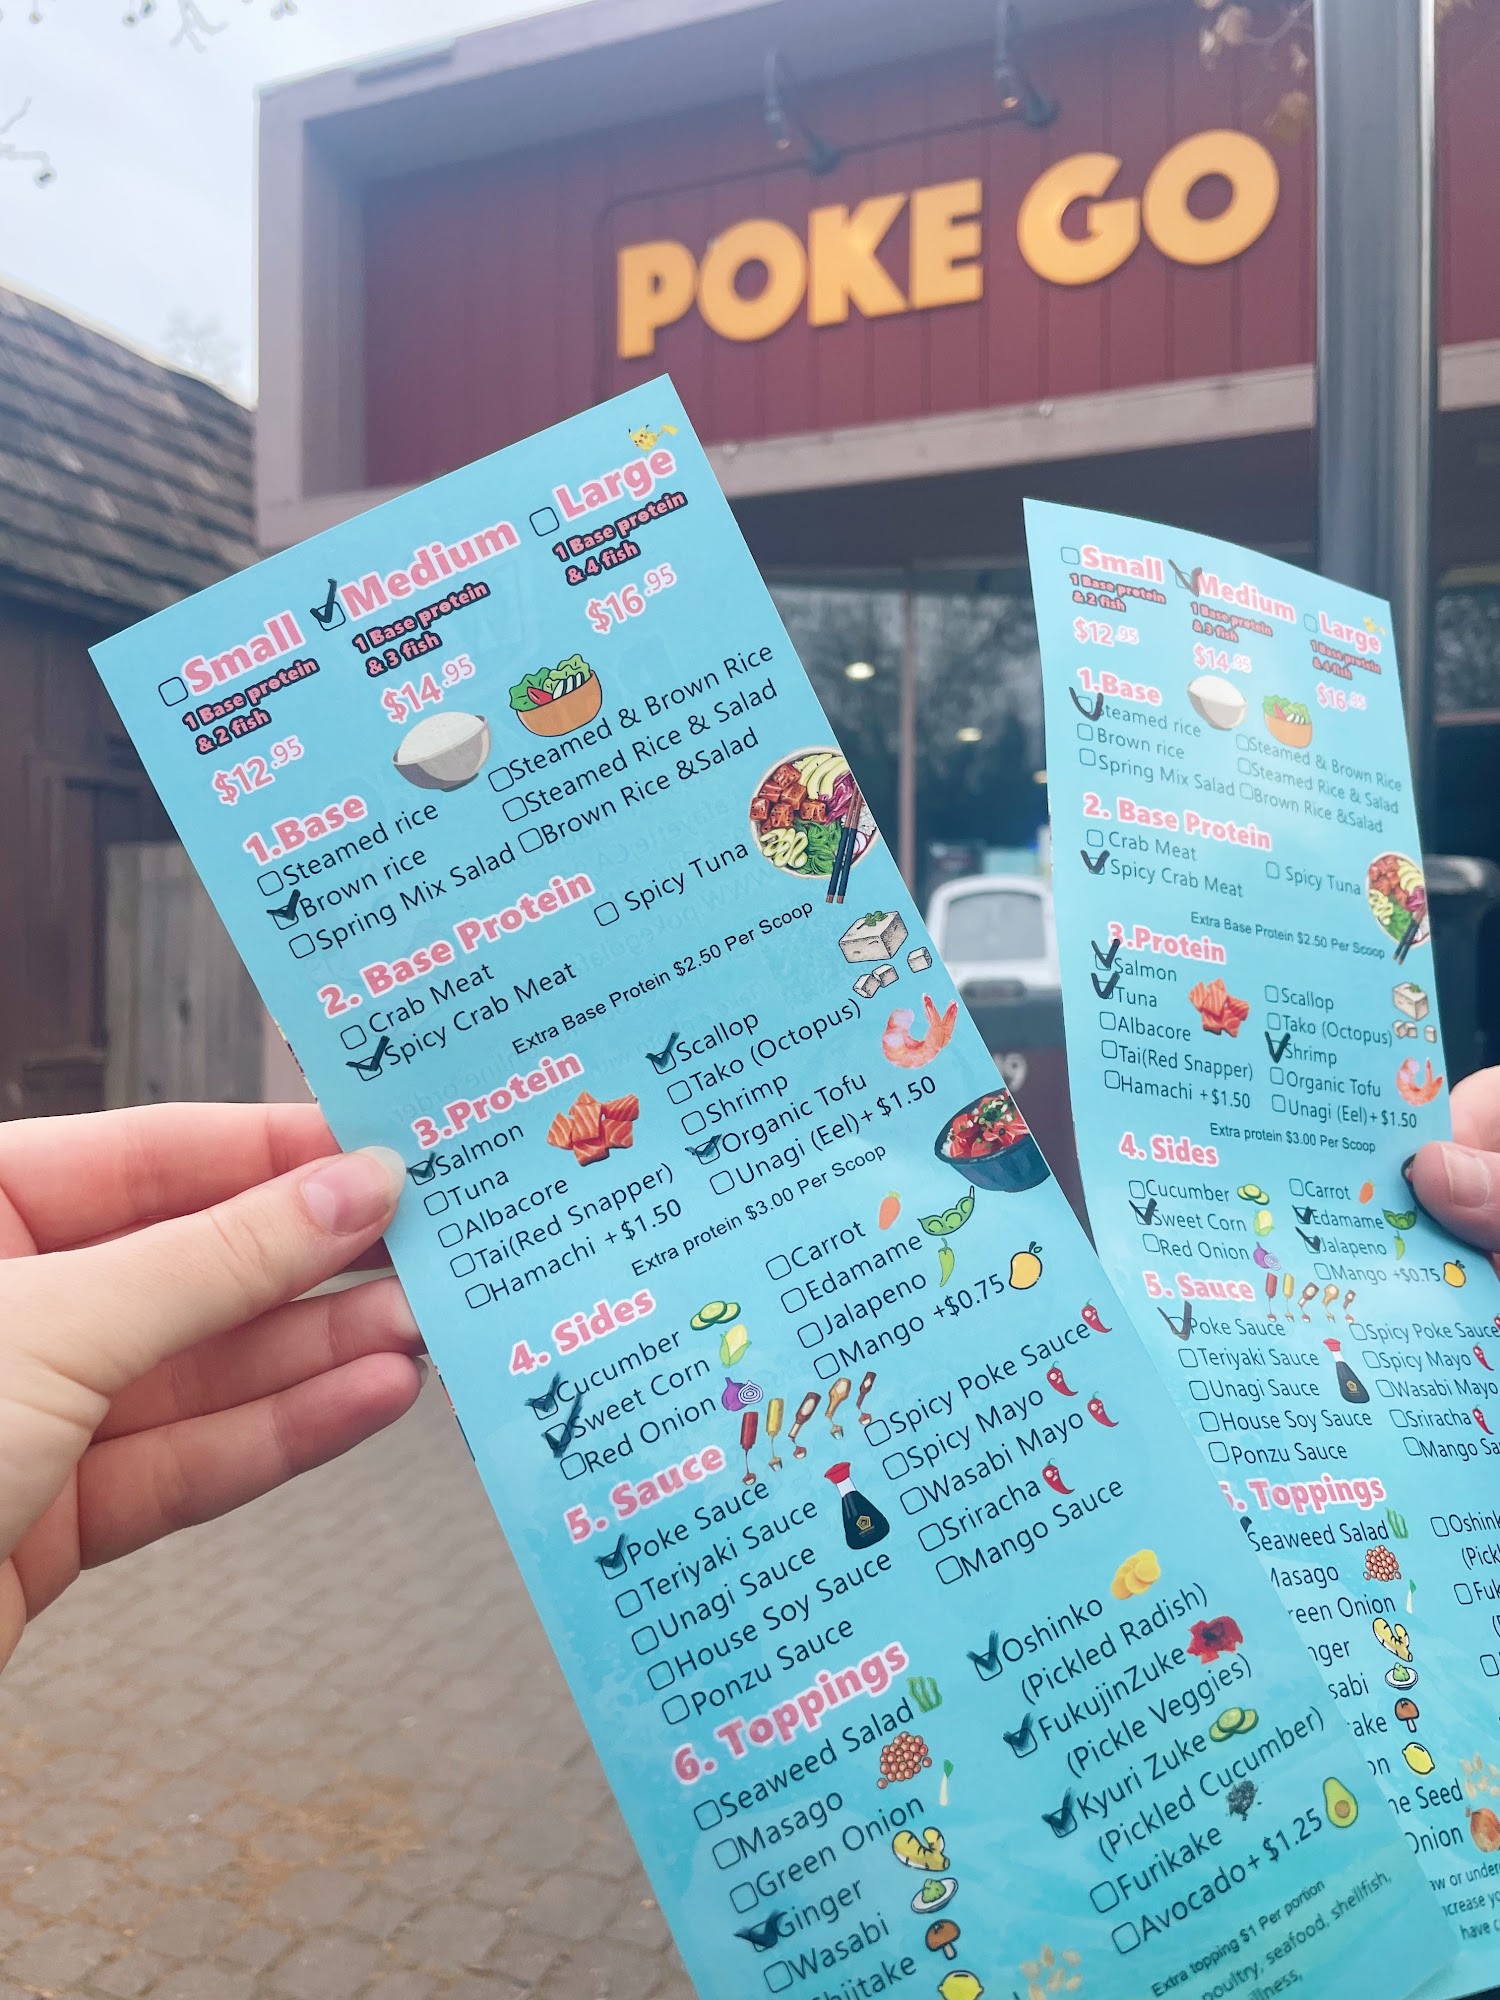 POKE GO
Small
Medium
Large
1 Base protein
& 2 fish
1 Base protein
& 3 fish
1 Base protein
& 4 fish
$12.95
$14.95
$16.95
1.Base
Steamed rice
Brown rice
Spring Mix Salad
Steamed & Brown Rice
Steamed Rice & Salad
Brown Rice &Salad
2. Base Protein
Crab Meat
Spicy Crab Meat
Spicy Tuna
Extra Base Protein $2.50 Per Scoop
3.Protein
Salmon
Tuna
Albacore
Tai(Red Snapper)
Hamachi +$1.50
Scallop
Tako (Octopus)
Shrimp
Organic Tofu
Unagi (Eel)+ $1.50
Extra protein $3.00 Per Scoop
4. Sides
Cucumber
Sweet Corn
Red Onion
Carrot
Edamame
Jalapeno
Mango +$0.75
5. Sauce
Poke Sauce
Teriyaki Sauce
Unagi Sauce
House Soy Sauce
Ponzu Sauce
Spicy Poke Sauce
Spicy Mayo
Wasabi Mayo
Sriracha
Mango Sauce
6. Toppings
Seaweed Salad
Masago
Green Onion
Ginger
Wasabi
Shiitake
Oshinko
(Pickled Radish)
FukujinZuke
(Pickle Veggies)
Kyuri Zuke
(Pickled Cucumber)
Furikake
Avocado+ $1.25
Extra topping $1 Per portion
poultry, seafood, shellfish,
Small
Medium
Large
1 Base protein
& 2 fish
1 Base protein
& 3 fish
1 Base protein
& 4 fish
$12.95
$14.95
$16.95
1.Base
Steamed rice
Brown rice
Spring Mix Salad
Steamed & Brown Rice
Steamed Rice & Salad
Brown Rice &Salad
2. Base Protein
Crab Meat
Spicy Crab Meat
Spicy Tuna
Extra Base Protein $2.50 Per Scoop
3.Protein
Salmon
Tuna
Albacore
Tai(Red Snapper)
Hamachi +$1.50
Scallop
Tako (Octopus)
Shrimp
Organic Tofu
Unagi (Eel)+$1.50
Extra protein $3.00 Per Scoop
4. Sides
Cucumber
Sweet Corn
Red Onion
Carrot
Edamame
Jalapeno
Mango +$0.75
5. Sauce
Poke Sauce
Teriyaki Sauce
Unagi Sauce
House Soy Sauce
Ponzu Sauce
Spicy Poke Sauce
Spicy Mayo
Wasabi Mayo
Sriracha
Mango Sa
Toppings
Seaweed Salad
Masago
reen Onion
nger
sabi
ake
on
ne Seed
Onion
Oshink
(Pick
Fuk
aw or under
ncrease yo
have c